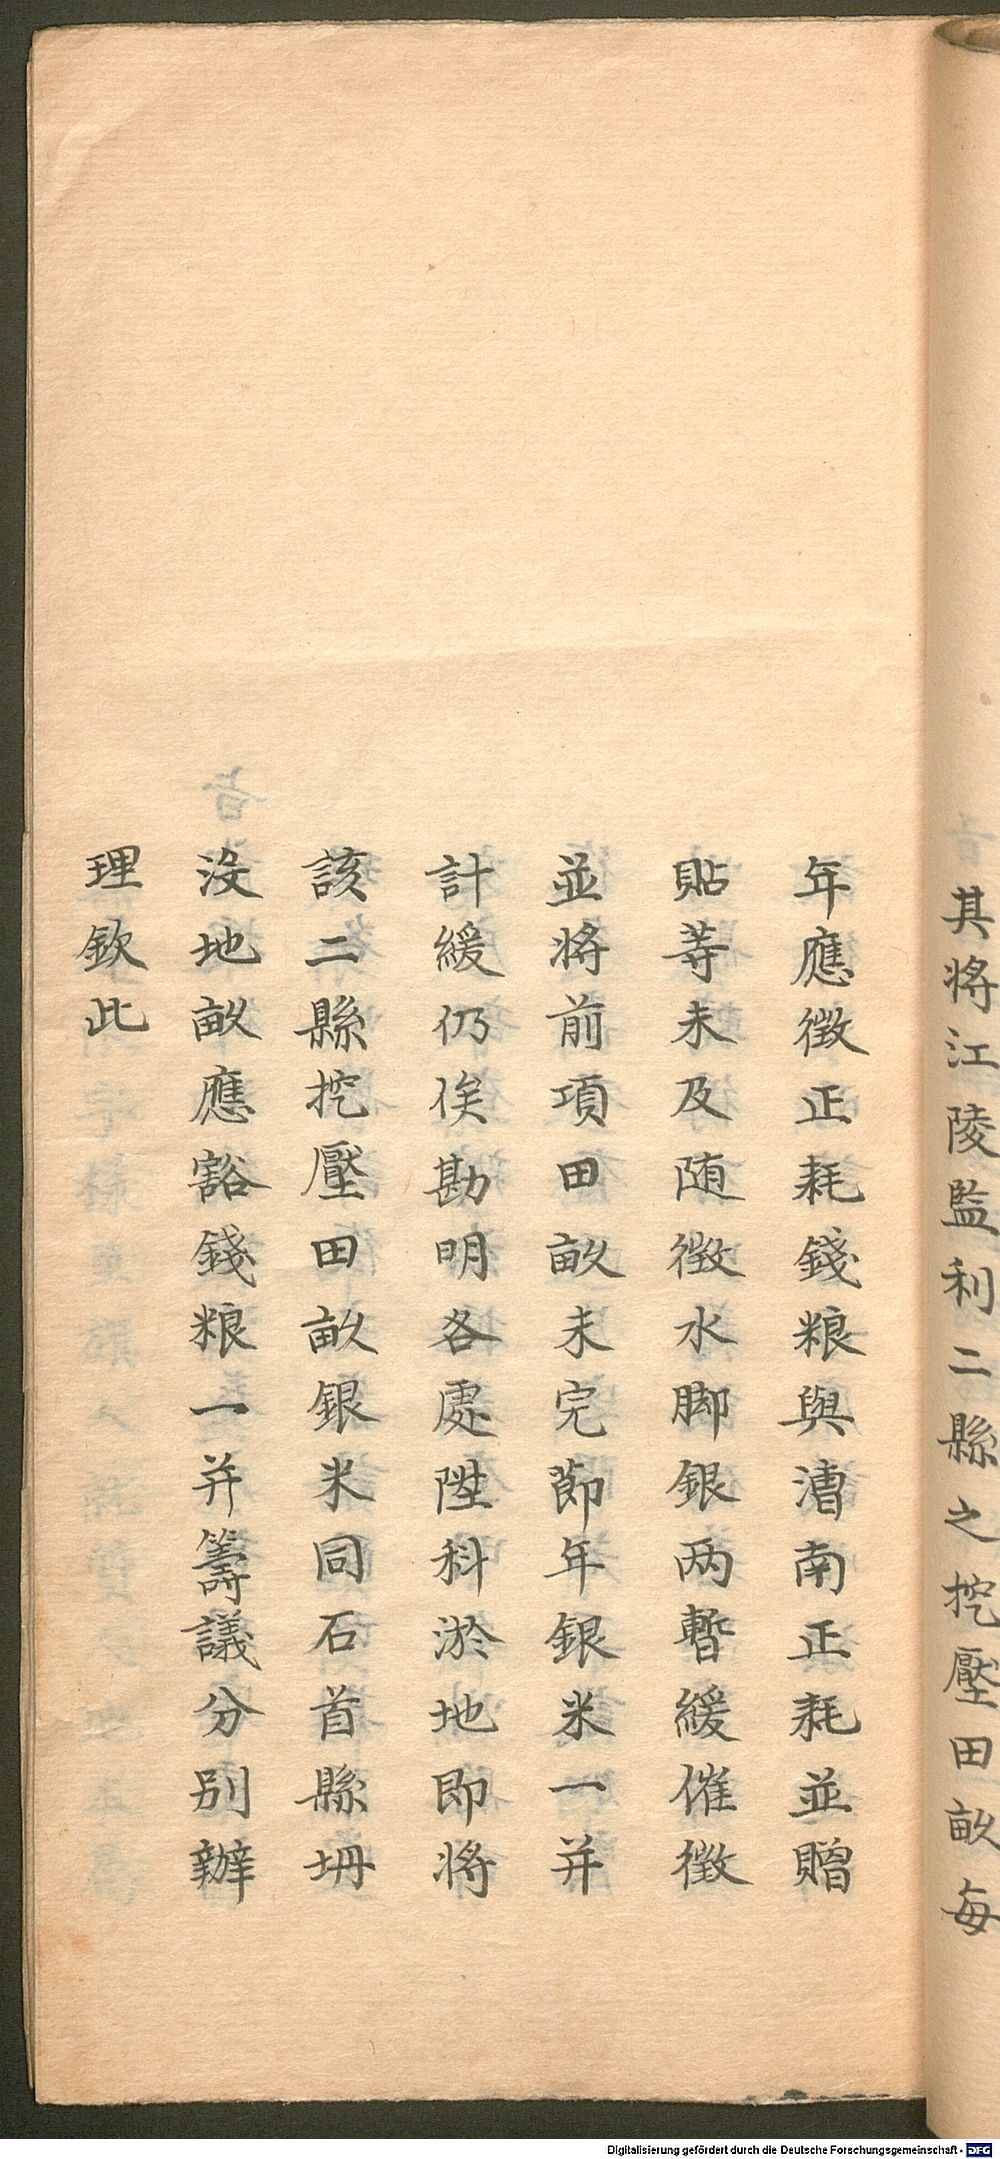 其將江陵監利二縣之挖壓田畝每
年應徵正耗錢粮與漕南正耗並贈
貼等未及随徵水脚銀两暫緩催徵
並將前項田畝未完節年銀米一并
計緩仍俟勘明各處陞科淤地即將
該二縣挖壓田畝銀米同石首縣坍
没地畝應豁錢粮一并籌議分別辦
理欽此
Digitalisierung gefördert durch die Deutsche Forschungsgemeinschaft - DFG